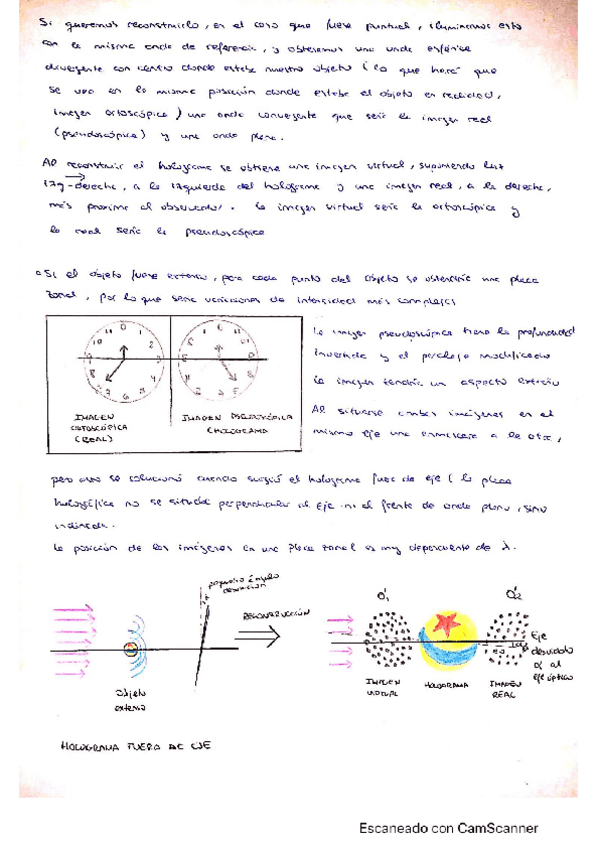 Si queremos reconstruirlo, en el caso que fuese puntual, iluminamos esto
con la misma onda de referencia, y obtenemos una onda esférica
divergente con centro donde estaba nuestro objeto (lo que hará que
se vea en la misma posición donde estaba el objeto en realidad,
imagen ortoscópica) una onda convergente que sería la imagen real
(pseudoscópica) y una onda plana.
Al reconstruir el holograma se obtiene una imagen virtual, suponiendo luz
izq-derecha, a la izquierda del holograma y una imagen real, a la derecha,
más próxima al observador. La imagen virtual sería la ortoscópica y
la real sería la pseudoscópica
Si el objeto fuese extenso, para cada punto del objeto se obtendría una placa
zonal, por lo que sería variaciones de intensidad más complejas
IMAGEN
ORTOSCÓPICA
(REAL)
IMAGEN PSEUDOSCÓPICA
HOLOGRAMA
La imagen pseudoscópica tiene la profundidad
invertida y el paralaje modificado
La imagen tendría un aspecto extraño
Al situarse ambas imágenes en el
mismo eje una enmascara a la otra,
pero esto se solucionó cuando surgió el holograma fuera de eje (la placa
holográfica no se situaba perpendicular al eje ni al frente de onda plano, sino
inclinada.
La posición de las imágenes en una placa zonal es muy dependiente de λ.
pequeño ángulo
desviación
RECONSTRUCCIÓN
Objeto
extenso
O'1
O'2
IMAGEN
VIRTUAL
HOLOGRAMA
IMAGEN
REAL
Eje
desviado
α al
eje óptico
HOLOGRAMA FUERA DE EJE
Escaneado con CamScanner